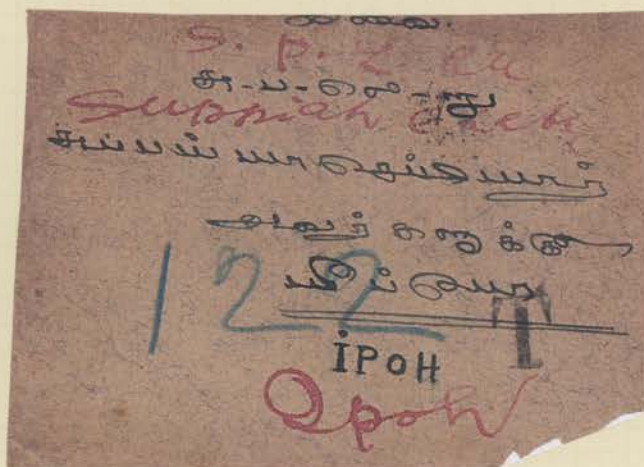 S. P. L
Suppiah Chetty
சுப்பய்யா செட்டியார்
அவர்களுக்கு
யீப்போ
122
T
IPOH
Ipoh